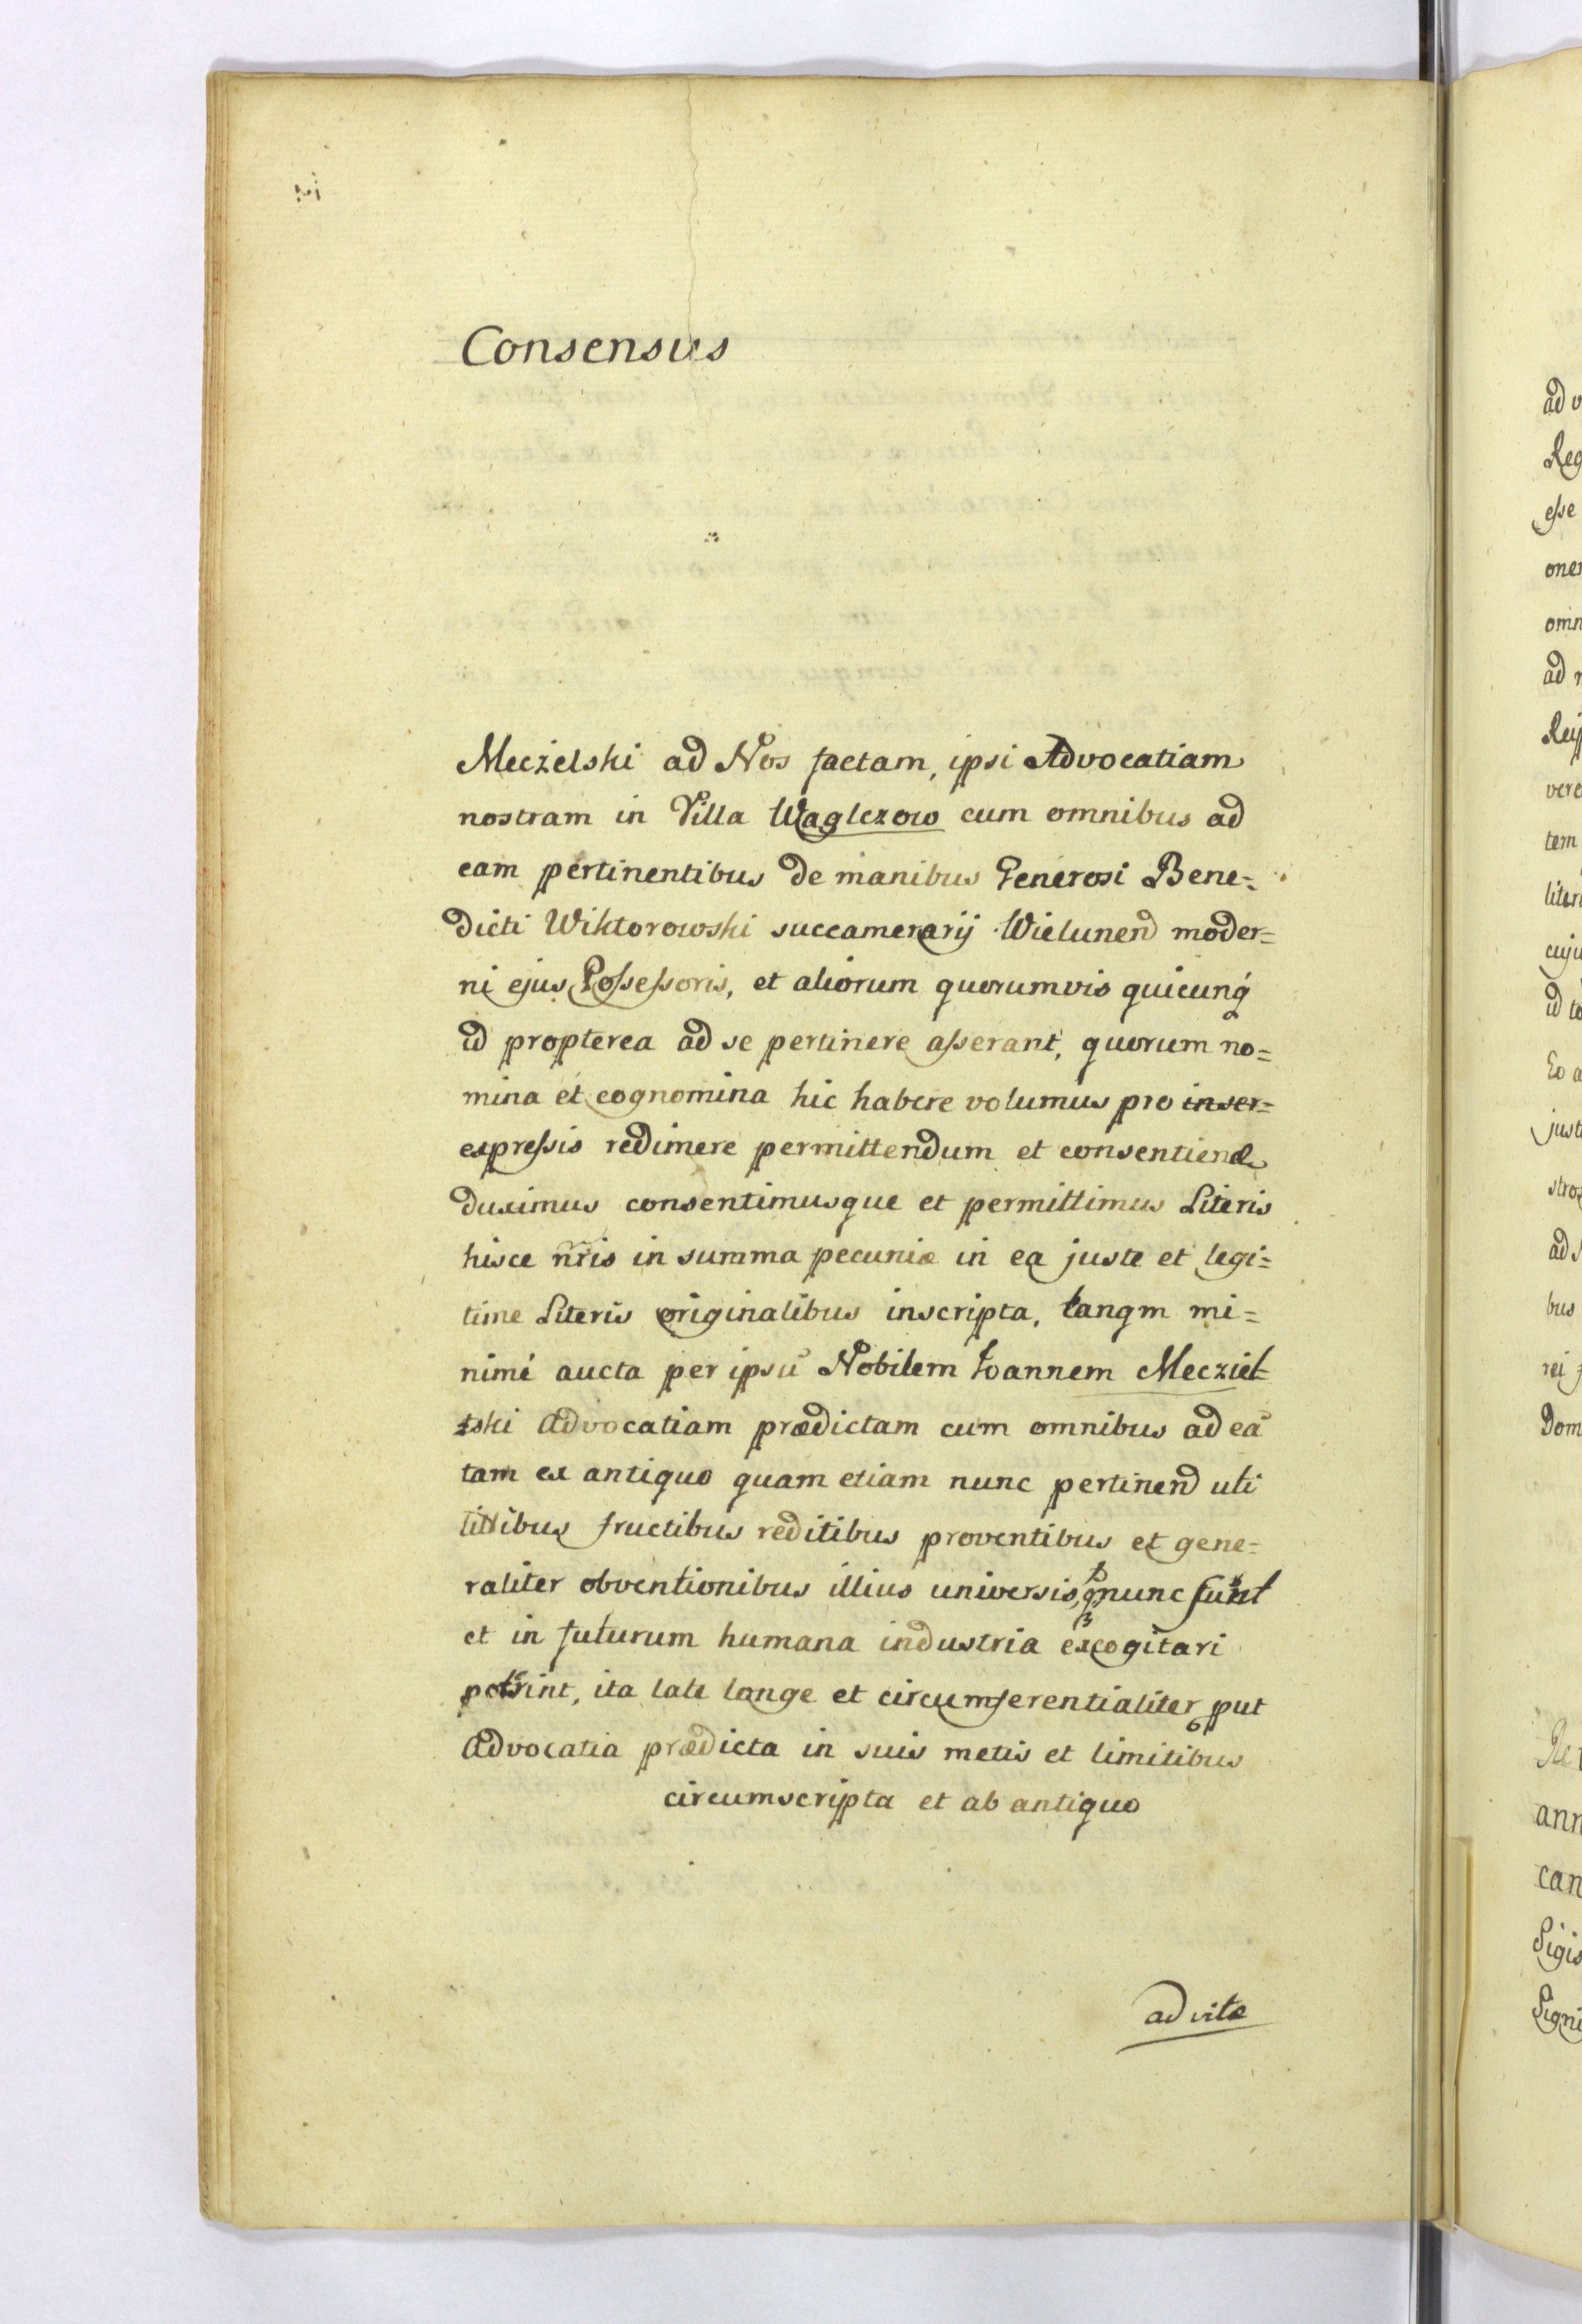 Consensus
Mecźelski ad Nos factam, ipsi Advocatiam
nostram in Villa Waglczow cum omnibus ad
eam pertinentibus de manibus Generosi Bene=
dicti Wiktorowski succamerarij Wielunend moder=
ni ejus Possessoris, et aliorum quorumvis quicunq́
id propterea ad se pertinere asserant, quorum no=
mina et cognomina hic habere volumus pro inser=
expressis redimere permittendum et consentiend
duximus consentimusque et permittimus Literis
hisce nris in summa pecuniæ in ea juste et legi=
time Literis originalibus inscripta, tanqm mi=
nimé aucta per ipsū Nobilem Ioannem Mecziel=
ski Advocatiam prædictam cum omnibus ad eā
tam ex antiquo quam etiam nunc pertinend uti
litibus fructibus reditibus proventibus et gene=
raliter obventionibus illius universis, q nunc sunt
et in futurum humana industria excogitari
poterint, ita late longe et circumferentialiter put
Advocatia prædicta in suis metis et limitibus
circumscripta et ab antiquo
ad vitæ
ad v
Reg
esse
omn
ad
vere
tem
cuju
id to
Eo a
just
ad
bus
rei
Dom
ann
can
Sigis
Signi